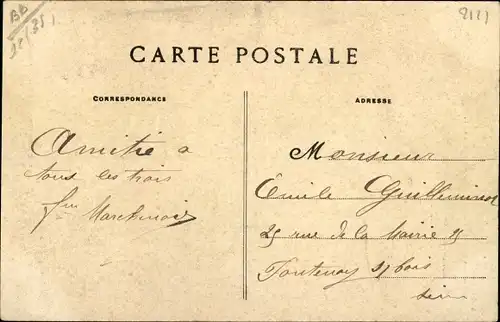 CARTE POSTALE
CORRESPONDANCE
Amitié a
tous les trois
ADRESSE
Monsieur
Émile Guilleminot
25 rue de la Mairie 25
Fontenay s/ bois
Seine